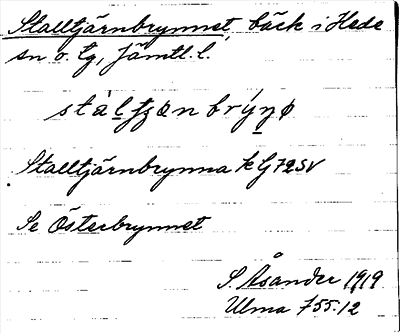 Stalltjärnbrynnet, bäck i Hede
sn o. tg, Jämtl. l.
Stalltjärnbrynna k G72SV
Se Österbrynnet
S. Åsander 1919
Ulma 755:12